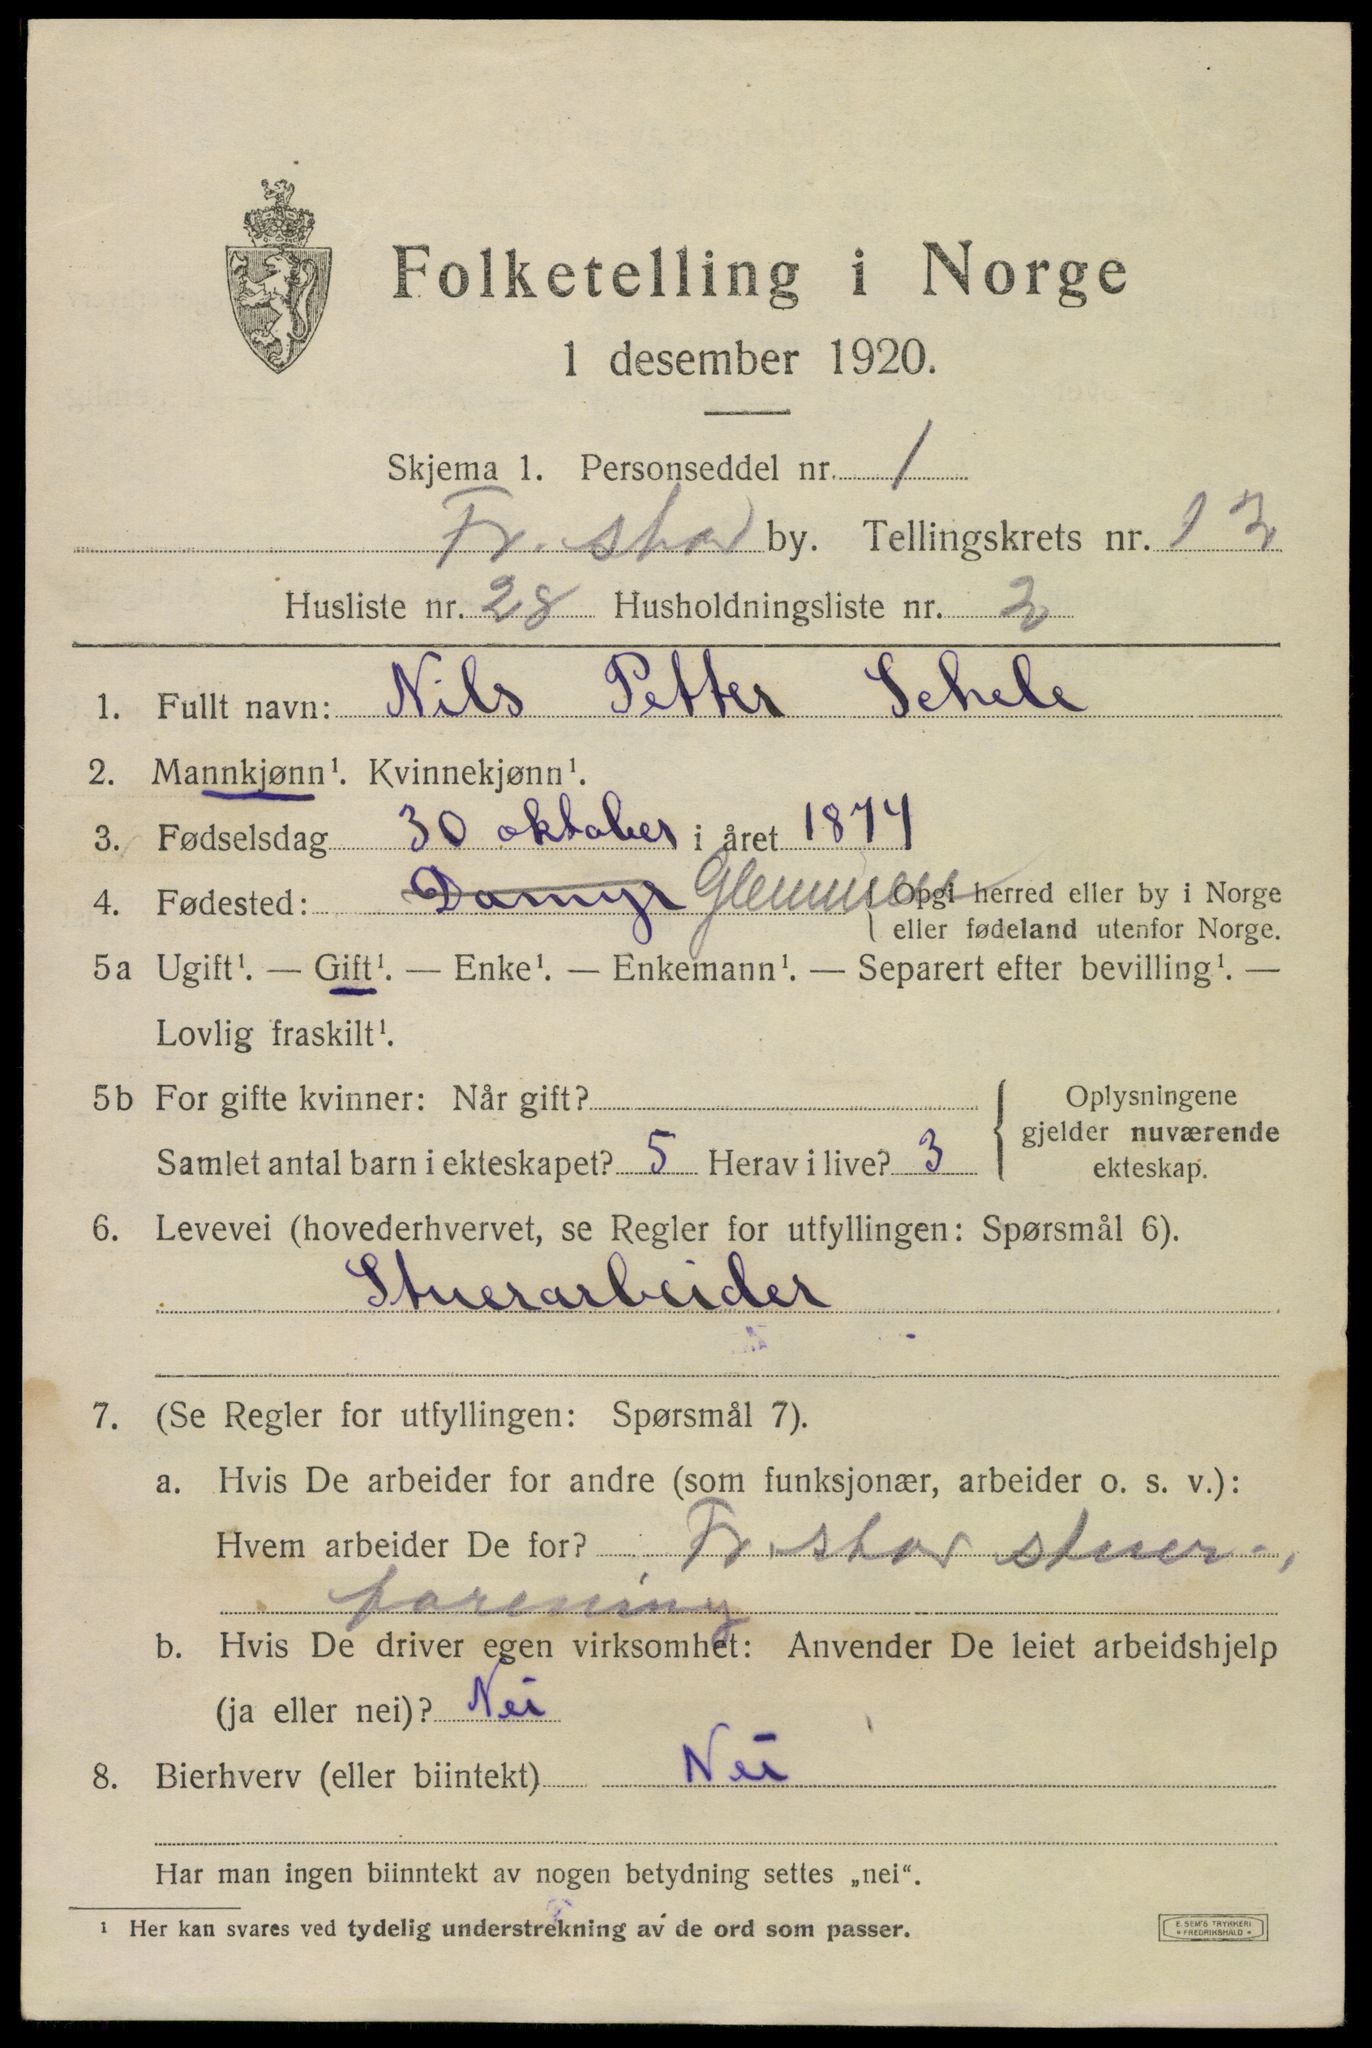 Folketelling i Norge
1 desember 1920.
Skjema 1. Personseddel nr. 1
Fr. stad by. Tellingskrets nr. 12
Husliste nr. 28 Husholdningsliste nr. 2
1. Fullt navn: Nils Petter Schele
2. Mannkjønn¹. Kvinnekjønn¹.
3. Fødselsdag 30 oktober i året 1874
4. Fødested: Damyr Glemmen { Opgi herred eller by i Norge
eller fødeland utenfor Norge.
5a Ugift¹. — Gift¹. — Enke¹. — Enkemann¹. — Separert efter bevilling¹. —
Lovlig fraskilt¹.
5b For gifte kvinner: Når gift?
Samlet antal barn i ekteskapet? 5 Herav i live? 3
{ Oplysningene
gjelder nuværende
ekteskap.
6. Levevei (hovederhvervet, se Regler for utfyllingen: Spørsmål 6).
Stuerarbeider
7. (Se Regler for utfyllingen: Spørsmål 7).
a. Hvis De arbeider for andre (som funksjonær, arbeider o. s. v.):
Hvem arbeider De for? Fr. stad stuer-
forening
b. Hvis De driver egen virksomhet: Anvender De leiet arbeidshjelp
(ja eller nei)? Nei
8. Bierhverv (eller biintekt) Nei
Har man ingen biinntekt av nogen betydning settes „nei“.
¹ Her kan svares ved tydelig understrekning av de ord som passer.
E. SEM'S TRYKKERI
FREDRIKSHALD